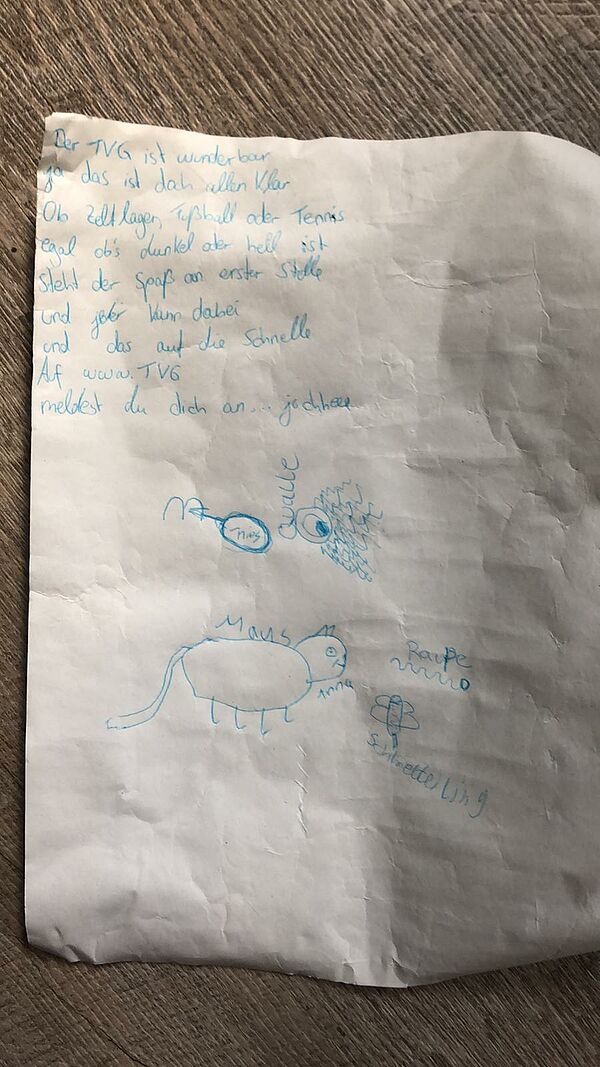 Der TVG ist wunderbar
ja das ist doch allen klar
Ob Zeltlager, Fußball oder Tennis
egal ob's dunkel oder hell ist
steht der Spaß an erster Stelle
und jeder kann dabei
und das auf die Schnelle
Auf www.TVG
meldest du dich an... juchhee
Qualle
Maus
Anna
Raupe
Schmetterling